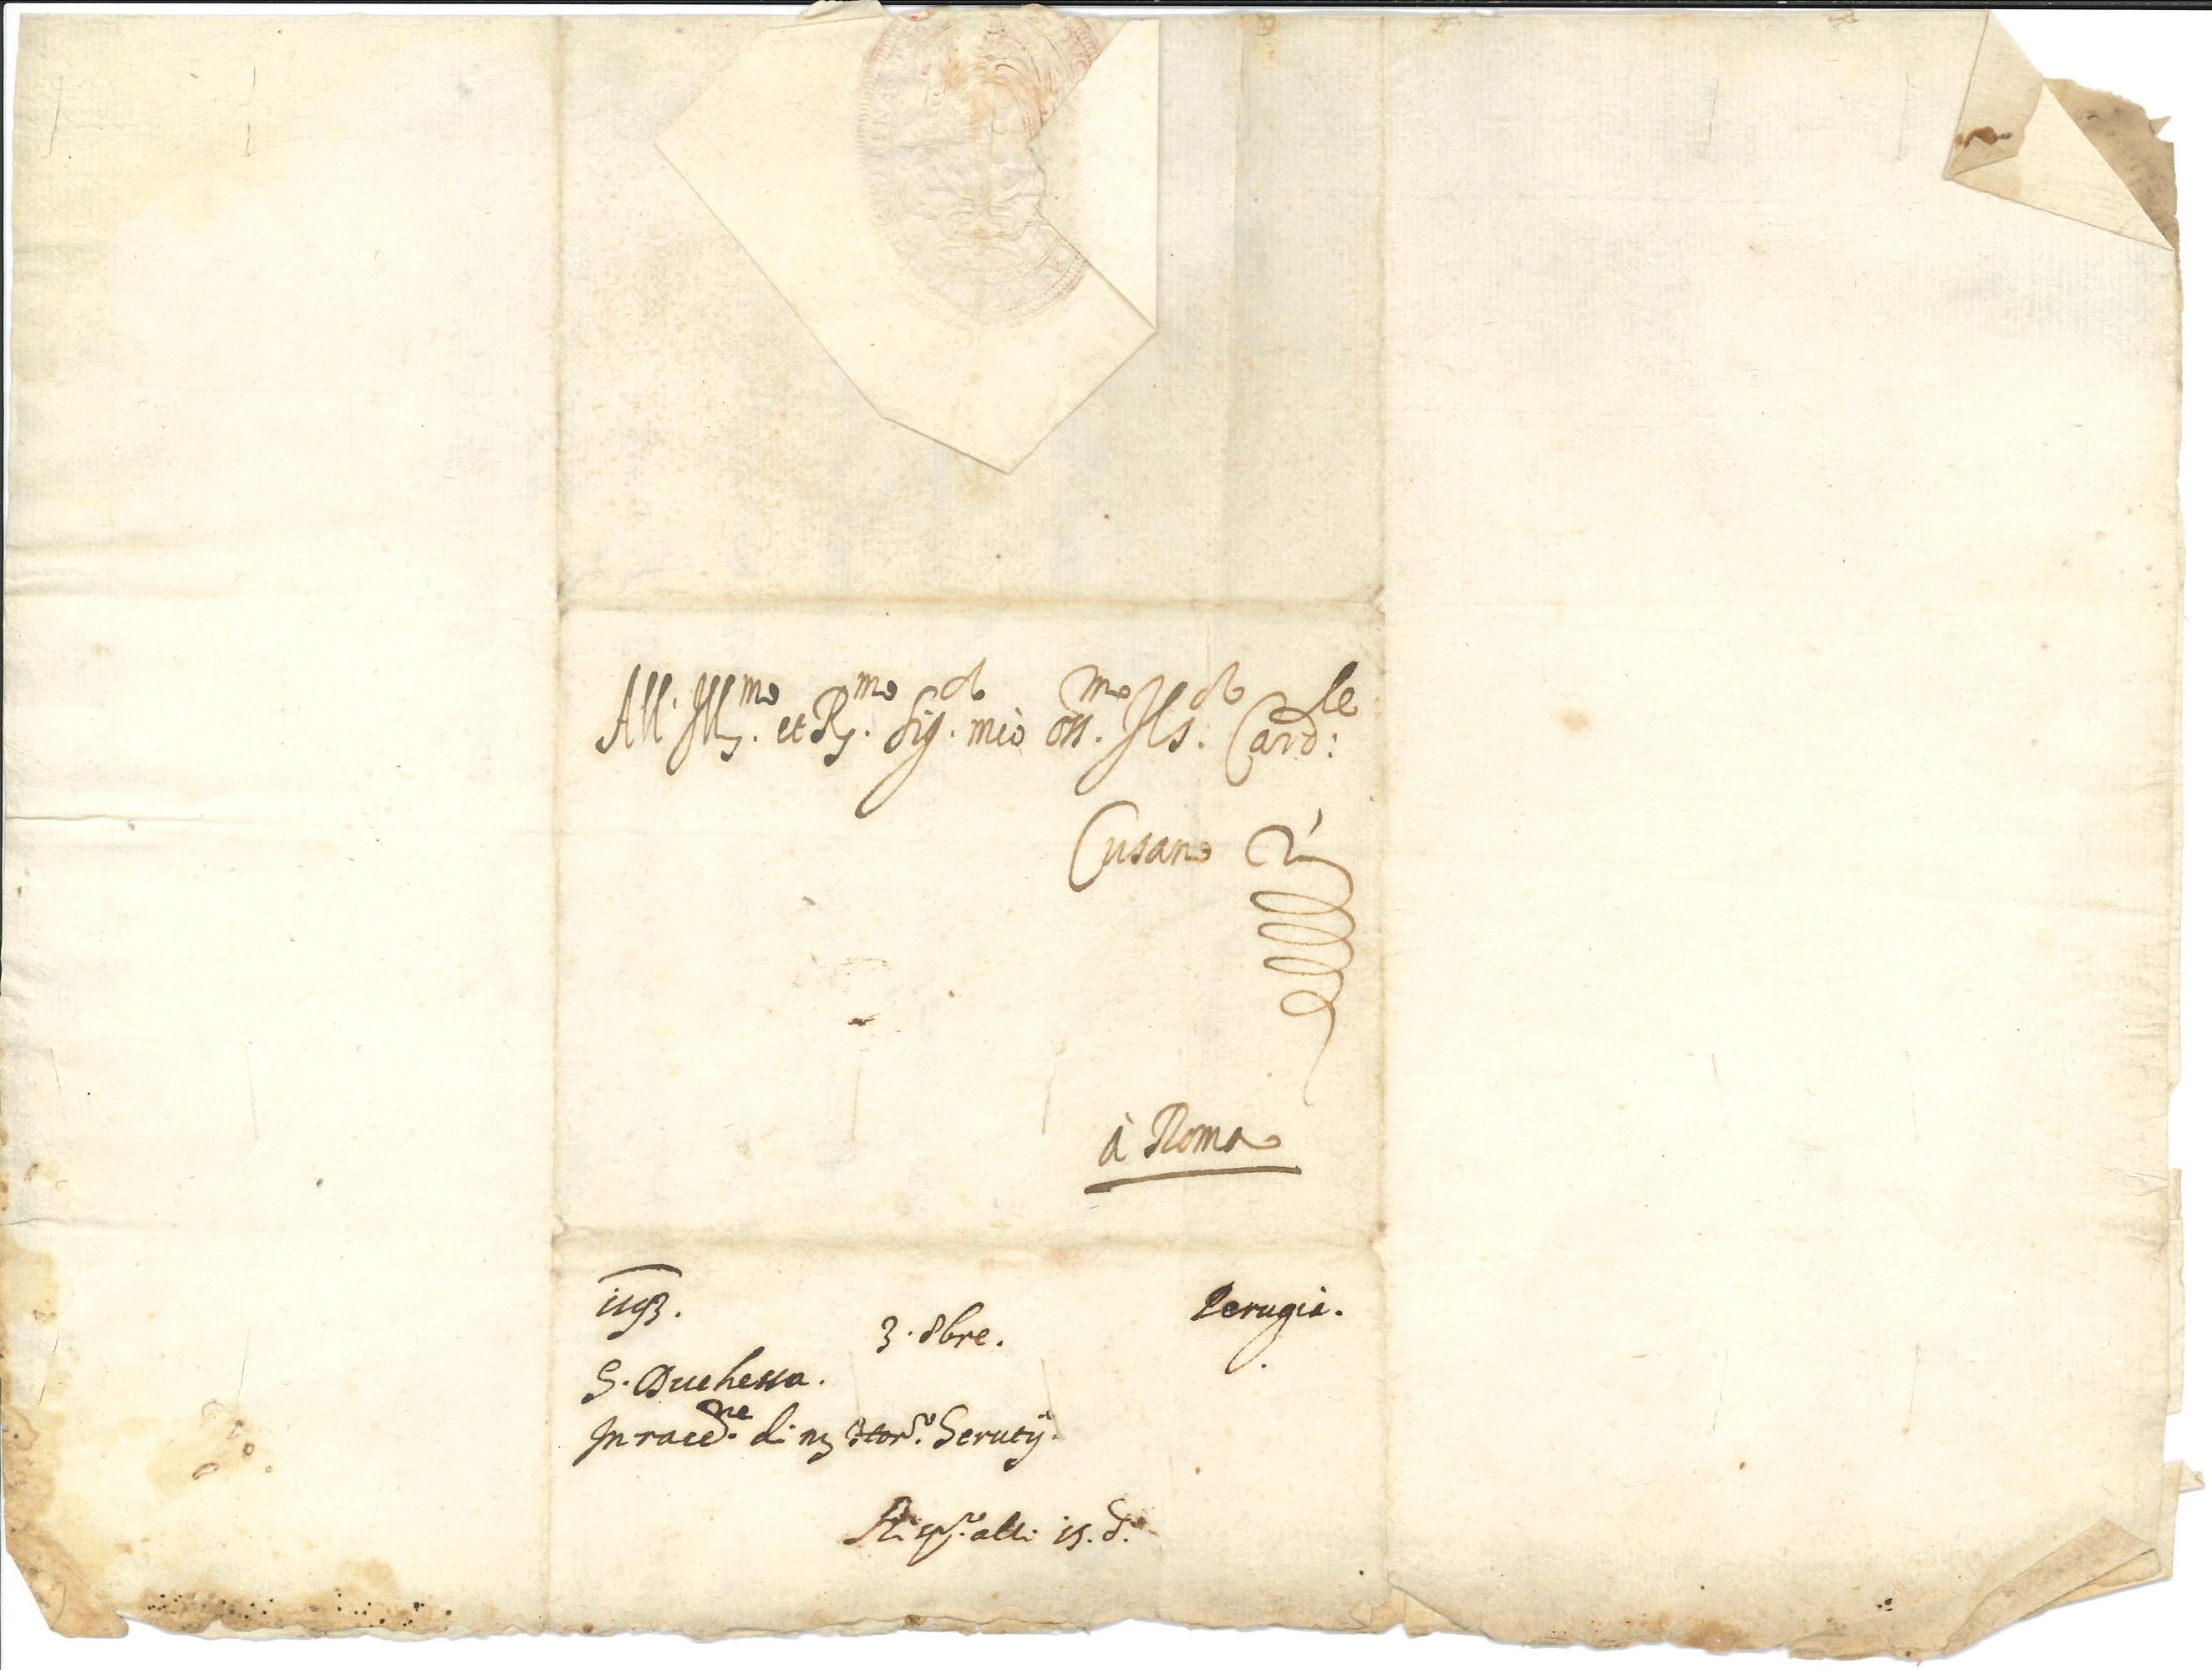 All' Ill.mo et R.mo Sig.r mio oss.mo Il S.r Card.le
Cusano
à Roma
1593.
3. 8bre.
Perugia.
S. Duchessa.
In racc.ne di
Risp.o alli 15. d.o